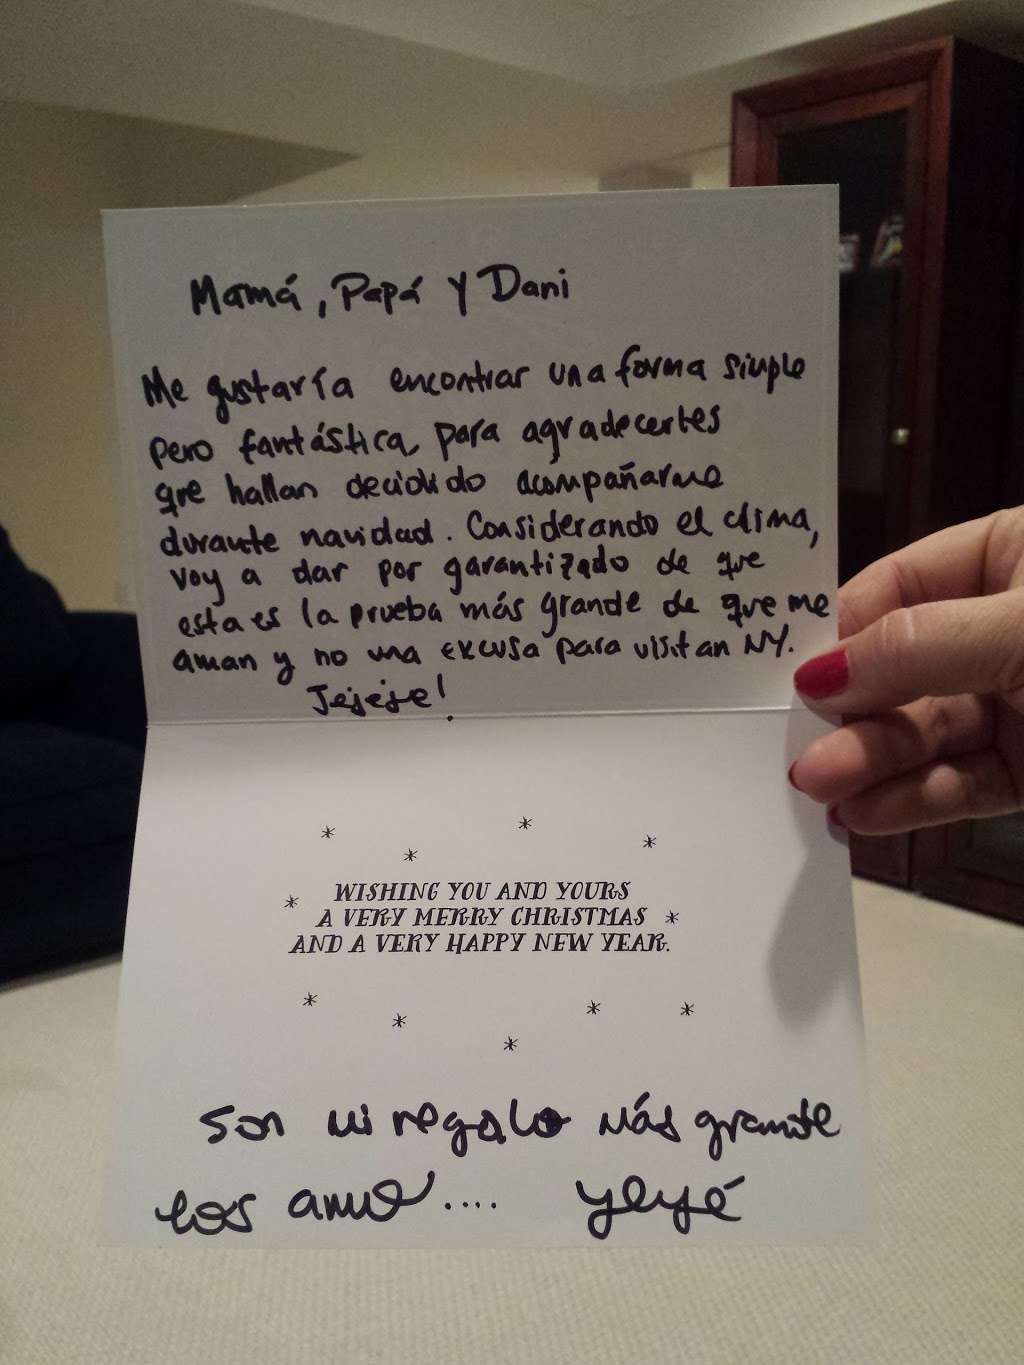 Mamá, Papá y Dani
Me gustaría encontrar una forma simple
pero fantástica, para agradecerles
que hallan decidido acompañarme
durante navidad. Considerando el clima,
voy a dar por garantizado de que
esta es la prueba más grande de que me
aman y no una excusa para visitan NY.
Jejeje!
WISHING YOU AND YOURS
A VERY MERRY CHRISTMAS
AND A VERY HAPPY NEW YEAR.
Son mi regalo más grande
los amo.... Yeyé